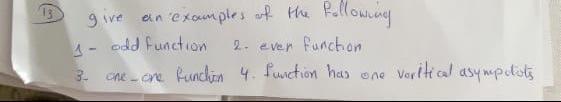 13 give an examples of the following
1 - odd function 2. even function
3- one-one function 4. function has one vertical asymptots